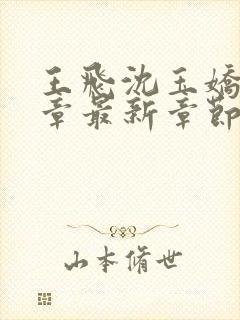 王飛沈玉嬌
章最新章節
山本脩世